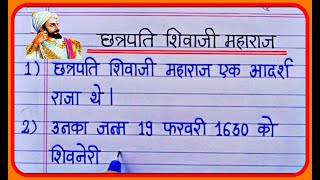 छत्रपति शिवाजी महाराज
1) छत्रपति शिवाजी महाराज एक आदर्श
राजा थे।
2) उनका जन्म 19 फरवरी 1630 को
शिवनेरी